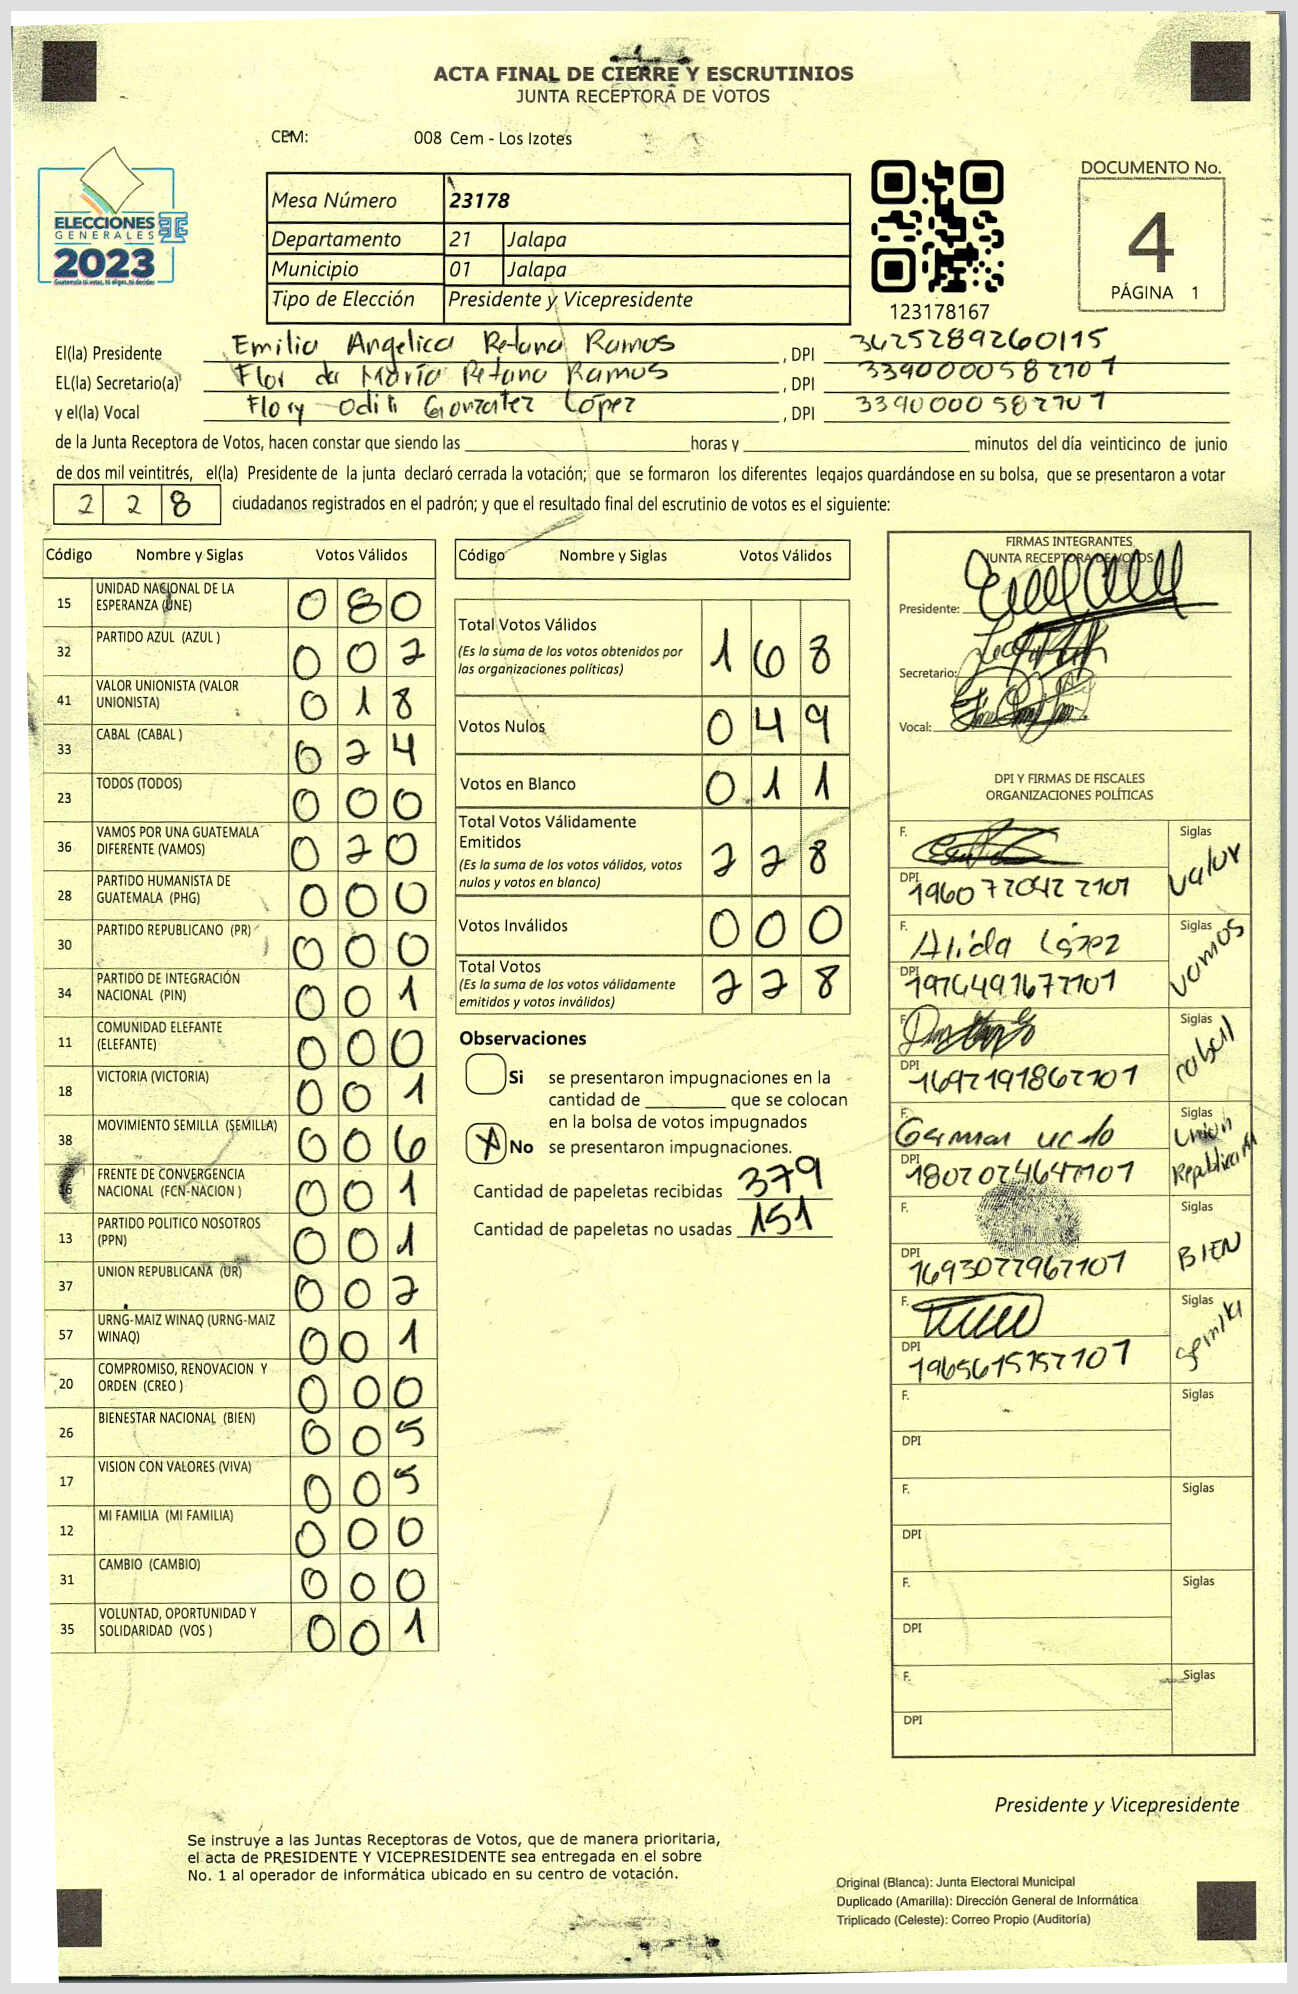 ACTA FINAL DE CIERRE Y ESCRUTINIOS
JUNTA RECEPTORA DE VOTOS
CEM: 008 Cem - Los Izotes
ELECCIONES
GENERALES
2023
Mesa Número 23178
Departamento 21 Jalapa
Municipio 01 Jalapa
Tipo de Elección Presidente y Vicepresidente
123178167
DOCUMENTO No.
4
PÁGINA 1
El(la) Presidente Emilia Angelica Retana Ramos , DPI 3425289260115
EL(la) Secretario(a) Flor de María Retana Ramos , DPI 3390000582101
y el(la) Vocal Flory Odili González López , DPI 3390000582101
de la Junta Receptora de Votos, hacen constar que siendo las horas y minutos del día veinticinco de junio
de dos mil veintitrés, el(la) Presidente de la junta declaró cerrada la votación; que se formaron los diferentes legajos guardándose en su bolsa, que se presentaron a votar
228 ciudadanos registrados en el padrón; y que el resultado final del escrutinio de votos es el siguiente:
Código Nombre y Siglas Votos Válidos
15 UNIDAD NACIONAL DE LA ESPERANZA (UNE) 080
32 PARTIDO AZUL (AZUL ) 002
41 VALOR UNIONISTA (VALOR UNIONISTA) 018
33 CABAL (CABAL ) 024
23 TODOS (TODOS) 000
36 VAMOS POR UNA GUATEMALA DIFERENTE (VAMOS) 020
28 PARTIDO HUMANISTA DE GUATEMALA (PHG) 000
30 PARTIDO REPUBLICANO (PR) 000
34 PARTIDO DE INTEGRACIÓN NACIONAL (PIN) 001
11 COMUNIDAD ELEFANTE (ELEFANTE) 000
18 VICTORIA (VICTORIA) 001
38 MOVIMIENTO SEMILLA (SEMILLA) 006
16 FRENTE DE CONVERGENCIA NACIONAL (FCN-NACION ) 001
13 PARTIDO POLITICO NOSOTROS (PPN) 001
37 UNION REPUBLICANA (UR) 002
57 URNG-MAIZ WINAQ (URNG-MAIZ WINAQ) 001
20 COMPROMISO, RENOVACION Y ORDEN (CREO ) 000
26 BIENESTAR NACIONAL (BIEN) 005
17 VISION CON VALORES (VIVA) 005
12 MI FAMILIA (MI FAMILIA) 000
31 CAMBIO (CAMBIO) 000
35 VOLUNTAD, OPORTUNIDAD Y SOLIDARIDAD (VOS ) 001
Código Nombre y Siglas Votos Válidos
Total Votos Válidos 168
(Es la suma de los votos obtenidos por
las organizaciones políticas)
Votos Nulos 049
Votos en Blanco 011
Total Votos Válidamente
Emitidos 228
(Es la suma de los votos válidos, votos
nulos y votos en blanco)
Votos Inválidos 000
Total Votos 228
(Es la suma de los votos válidamente
emitidos y votos inválidos)
Observaciones
Si se presentaron impugnaciones en la
cantidad de que se colocan
en la bolsa de votos impugnados
X No se presentaron impugnaciones.
Cantidad de papeletas recibidas 379
Cantidad de papeletas no usadas 151
FIRMAS INTEGRANTES
JUNTA RECEPTORA DE VOTOS
Presidente:
Secretario:
Vocal:
DPI Y FIRMAS DE FISCALES
ORGANIZACIONES POLÍTICAS
F. Siglas valor
DPI 1960772042 2101
F. Alida López Siglas vamos
DPI 1976491672101
F. Siglas cabal
DPI 1692191862101
F. German Siglas Union Republicana
DPI 1802024642101
F. Siglas BIEN
DPI 1693022962101
F. Siglas Semilla
DPI 1965615152101
F. Siglas
DPI
F. Siglas
DPI
F. Siglas
DPI
F. Siglas
DPI
Presidente y Vicepresidente
Se instruye a las Juntas Receptoras de Votos, que de manera prioritaria,
el acta de PRESIDENTE Y VICEPRESIDENTE sea entregada en el sobre
No. 1 al operador de informática ubicado en su centro de votación.
Original (Blanca): Junta Electoral Municipal
Duplicado (Amarilla): Dirección General de Informática
Triplicado (Celeste): Correo Propio (Auditoría)